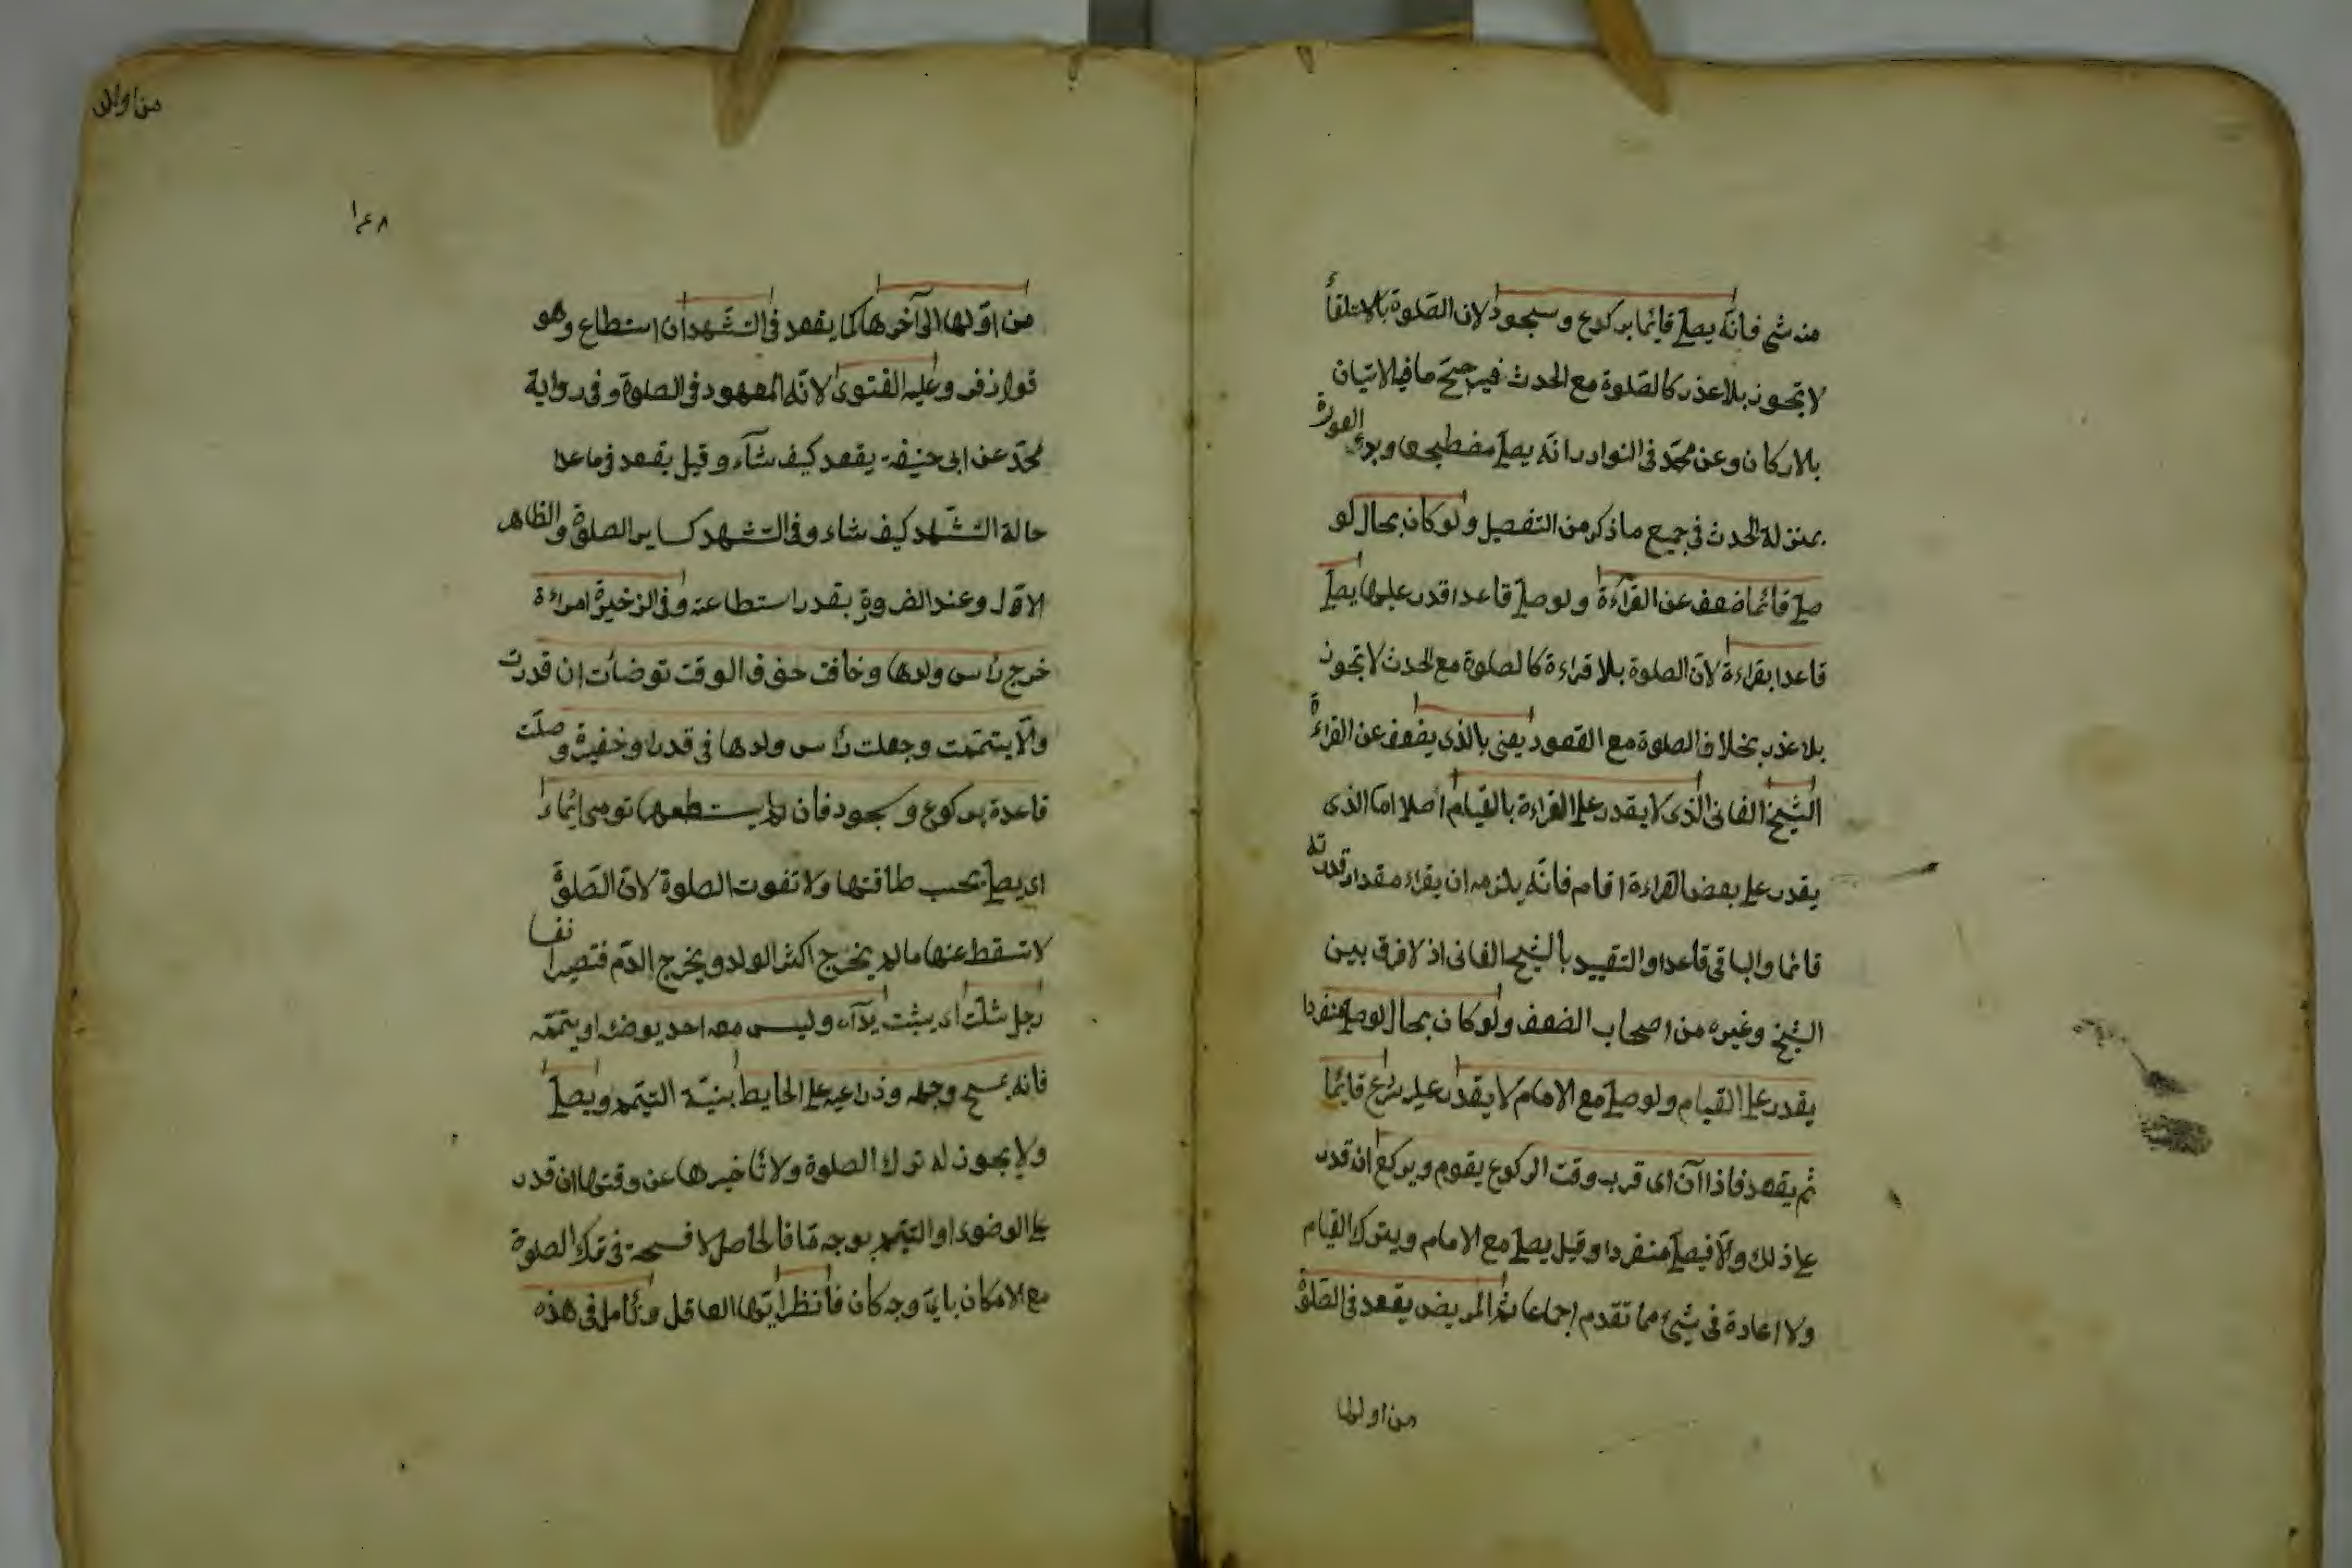 منه شئ فانّه يصلّ قائما بركوع وسجود لان الصّلوة بالاستلقأ
لا تجوز بلا عذر كالصّلوة مع الحدث فيرجحّ ما فيه الاتيان
بالاركان وعن محمّد فى النوادر انّه يصلّ مضطجعا وبدو العورة
بمنزلة الحدث فى جميع ما ذكر من التفصيل ولو كان بحال لو
صلّ قائما ضعف عن القرآءة ولو صلّ قاعدا قدر عليها يصلّ
قاعدا بقراءة لانّ الصلوة بلا قراءة كالصلوة مع الحدث لا تجوز
بلا عذر بخلاف الصلوة مع القعود يعنى بالذى يضعف عن القراءة
الشّيخ الفانى الذى لا يقدر على القراءة بالقيام اصلا امّا الذى
يقدر على بعض القراءة اقام فانّه يلزمه ان يقراء مقدار قدرته
قائما والباقى قاعدا والتقييد بالشّيخ الفانى اذ لا فرق بين
الشيخ وغيره من اصحاب الضعف ولو كان بحال لو صلّ منفردا
يقدر على القيام ولو صلّ مع الامام لا يقدر عليه شرع قائما
ثم يقعد فاذا آن اى قرب وقت الركوع يقوم ويركع ان قدر
على ذلك والّا فيصلّ منفردا وقيل يصلّ مع الامام ويترك القيام
ولا اعادة فى شئ مما تقدم اجماعا ثم المريض يقعد فى الصّلوة
من اولها
من اولها
١٤٨
من اوّلها الى آخرها كما يقعد فى التشّهد ان استطاع وهو
قول زفر وعليه الفتوى لانّه المعهود فى الصلوة وفى رواية
محمّد عن ابى حنيفة يقعد كيف شآء وقيل يقعد فى ما عدا
حالة التشّهد كيف شاء وفى التشهد كساير الصلوة والظاهر
الاوّل وعند الضروة بقدر استطاعته وفى الزخيرة امراءة
خرج رأس ولدها وخافت خوف الوقت توضأت ان قدرت
والّا يتممّت وجعلت رأس ولدها فى قدر او حفيرة وصلّت
قاعدة بركوع وسجود فان لم يستطعها تومى ايماءً
اى يصلّ بحسب طاقتها ولا تفوت الصلوة لانّ الصّلوة
لا تسقط عنها ما لم يخرج اكثر الولد ويخرج الدّم فتصير نفسا
رجل شلّت اى يبست يدآه وليس معه احد يوضئه او ييمّمه
فانه يمسح وجهه وذراعيه على الحايط بنيّة التيمّم ويصلّ
ولا يجوز له ترك الصلوة ولا تأخيرها عن وقتها ان قدر
على الوضوء او التيمّم بوجه مّا فالحاصل لا فسحة فى ترك الصلوة
مع الامكان باىّ وجه كان فانظر ايّها العاقل وتأمل فى هذه